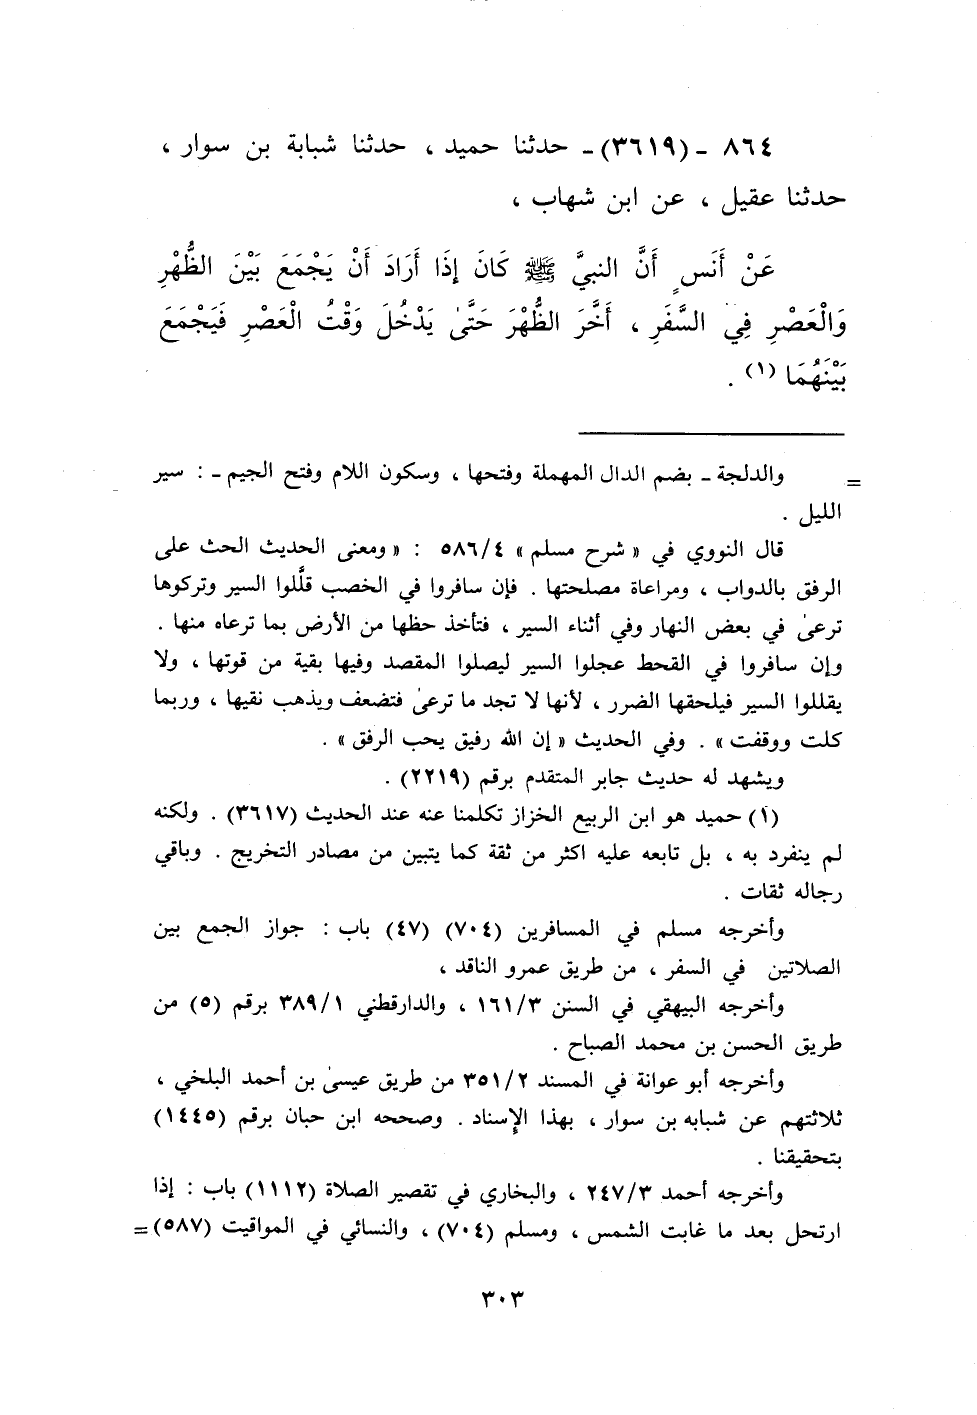 ٨٦٤ ـ (٣٦١٩) ـ حدثنا حميد ، حدثنا شبابة بن سوار ،
حدثنا عقيل ، عن ابن شهاب ،
عَنْ أَنَسٍ أَنَّ النبيَّ ﷺ كَانَ إِذَا أَرَادَ أَنْ يَجْمَعَ بَيْنَ الظُّهْرِ
وَالْعَصْرِ فِي السَّفَرِ ، أَخَّرَ الظُّهْرَ حَتَّىٰ يَدْخُلَ وَقْتُ الْعَصْرِ فَيَجْمَعَ
بَيْنَهُمَا (١) .
= والدلجة ـ بضم الدال المهملة وفتحها ، وسكون اللام وفتح الجيم ـ : سير
الليل .
قال النووي في « شرح مسلم » ٥٨٦/٤ : « ومعنى الحديث الحث على
الرفق بالدواب ، ومراعاة مصلحتها . فإن سافروا في الخصب قلَّلوا السير وتركوها
ترعىٰ في بعض النهار وفي أثناء السير ، فتأخذ حظها من الأرض بما ترعاه منها .
وإن سافروا في القحط عجلوا السير ليصلوا المقصد وفيها بقية من قوتها ، ولا
يقللوا السير فيلحقها الضرر ، لأنها لا تجد ما ترعىٰ فتضعف ويذهب نقيها ، وربما
كلت ووقفت » . وفي الحديث « إن الله رفيق يحب الرفق » .
ويشهد له حديث جابر المتقدم برقم (٢٢١٩) .
(١) حميد هو ابن الربيع الخزاز تكلمنا عنه عند الحديث (٣٦١٧) . ولكنه
لم ينفرد به ، بل تابعه عليه اكثر من ثقة كما يتبين من مصادر التخريج . وباقي
رجاله ثقات .
وأخرجه مسلم في المسافرين (٧٠٤) (٤٧) باب : جواز الجمع بين
الصلاتين في السفر ، من طريق عمرو الناقد ،
وأخرجه البيهقي في السنن ١٦١/٣ ، والدارقطني ٣٨٩/١ برقم (٥) من
طريق الحسن بن محمد الصباح .
وأخرجه أبو عوانة في المسند ٣٥١/٢ من طريق عيسىٰ بن أحمد البلخي ،
ثلاثتهم عن شبابه بن سوار ، بهذا الإسناد . وصححه ابن حبان برقم (١٤٤٥)
بتحقيقنا .
وأخرجه أحمد ٢٤٧/٣ ، والبخاري في تقصير الصلاة (١١١٢) باب : إذا
ارتحل بعد ما غابت الشمس ، ومسلم (٧٠٤) ، والنسائي في المواقيت (٥٨٧) =
٣٠٣